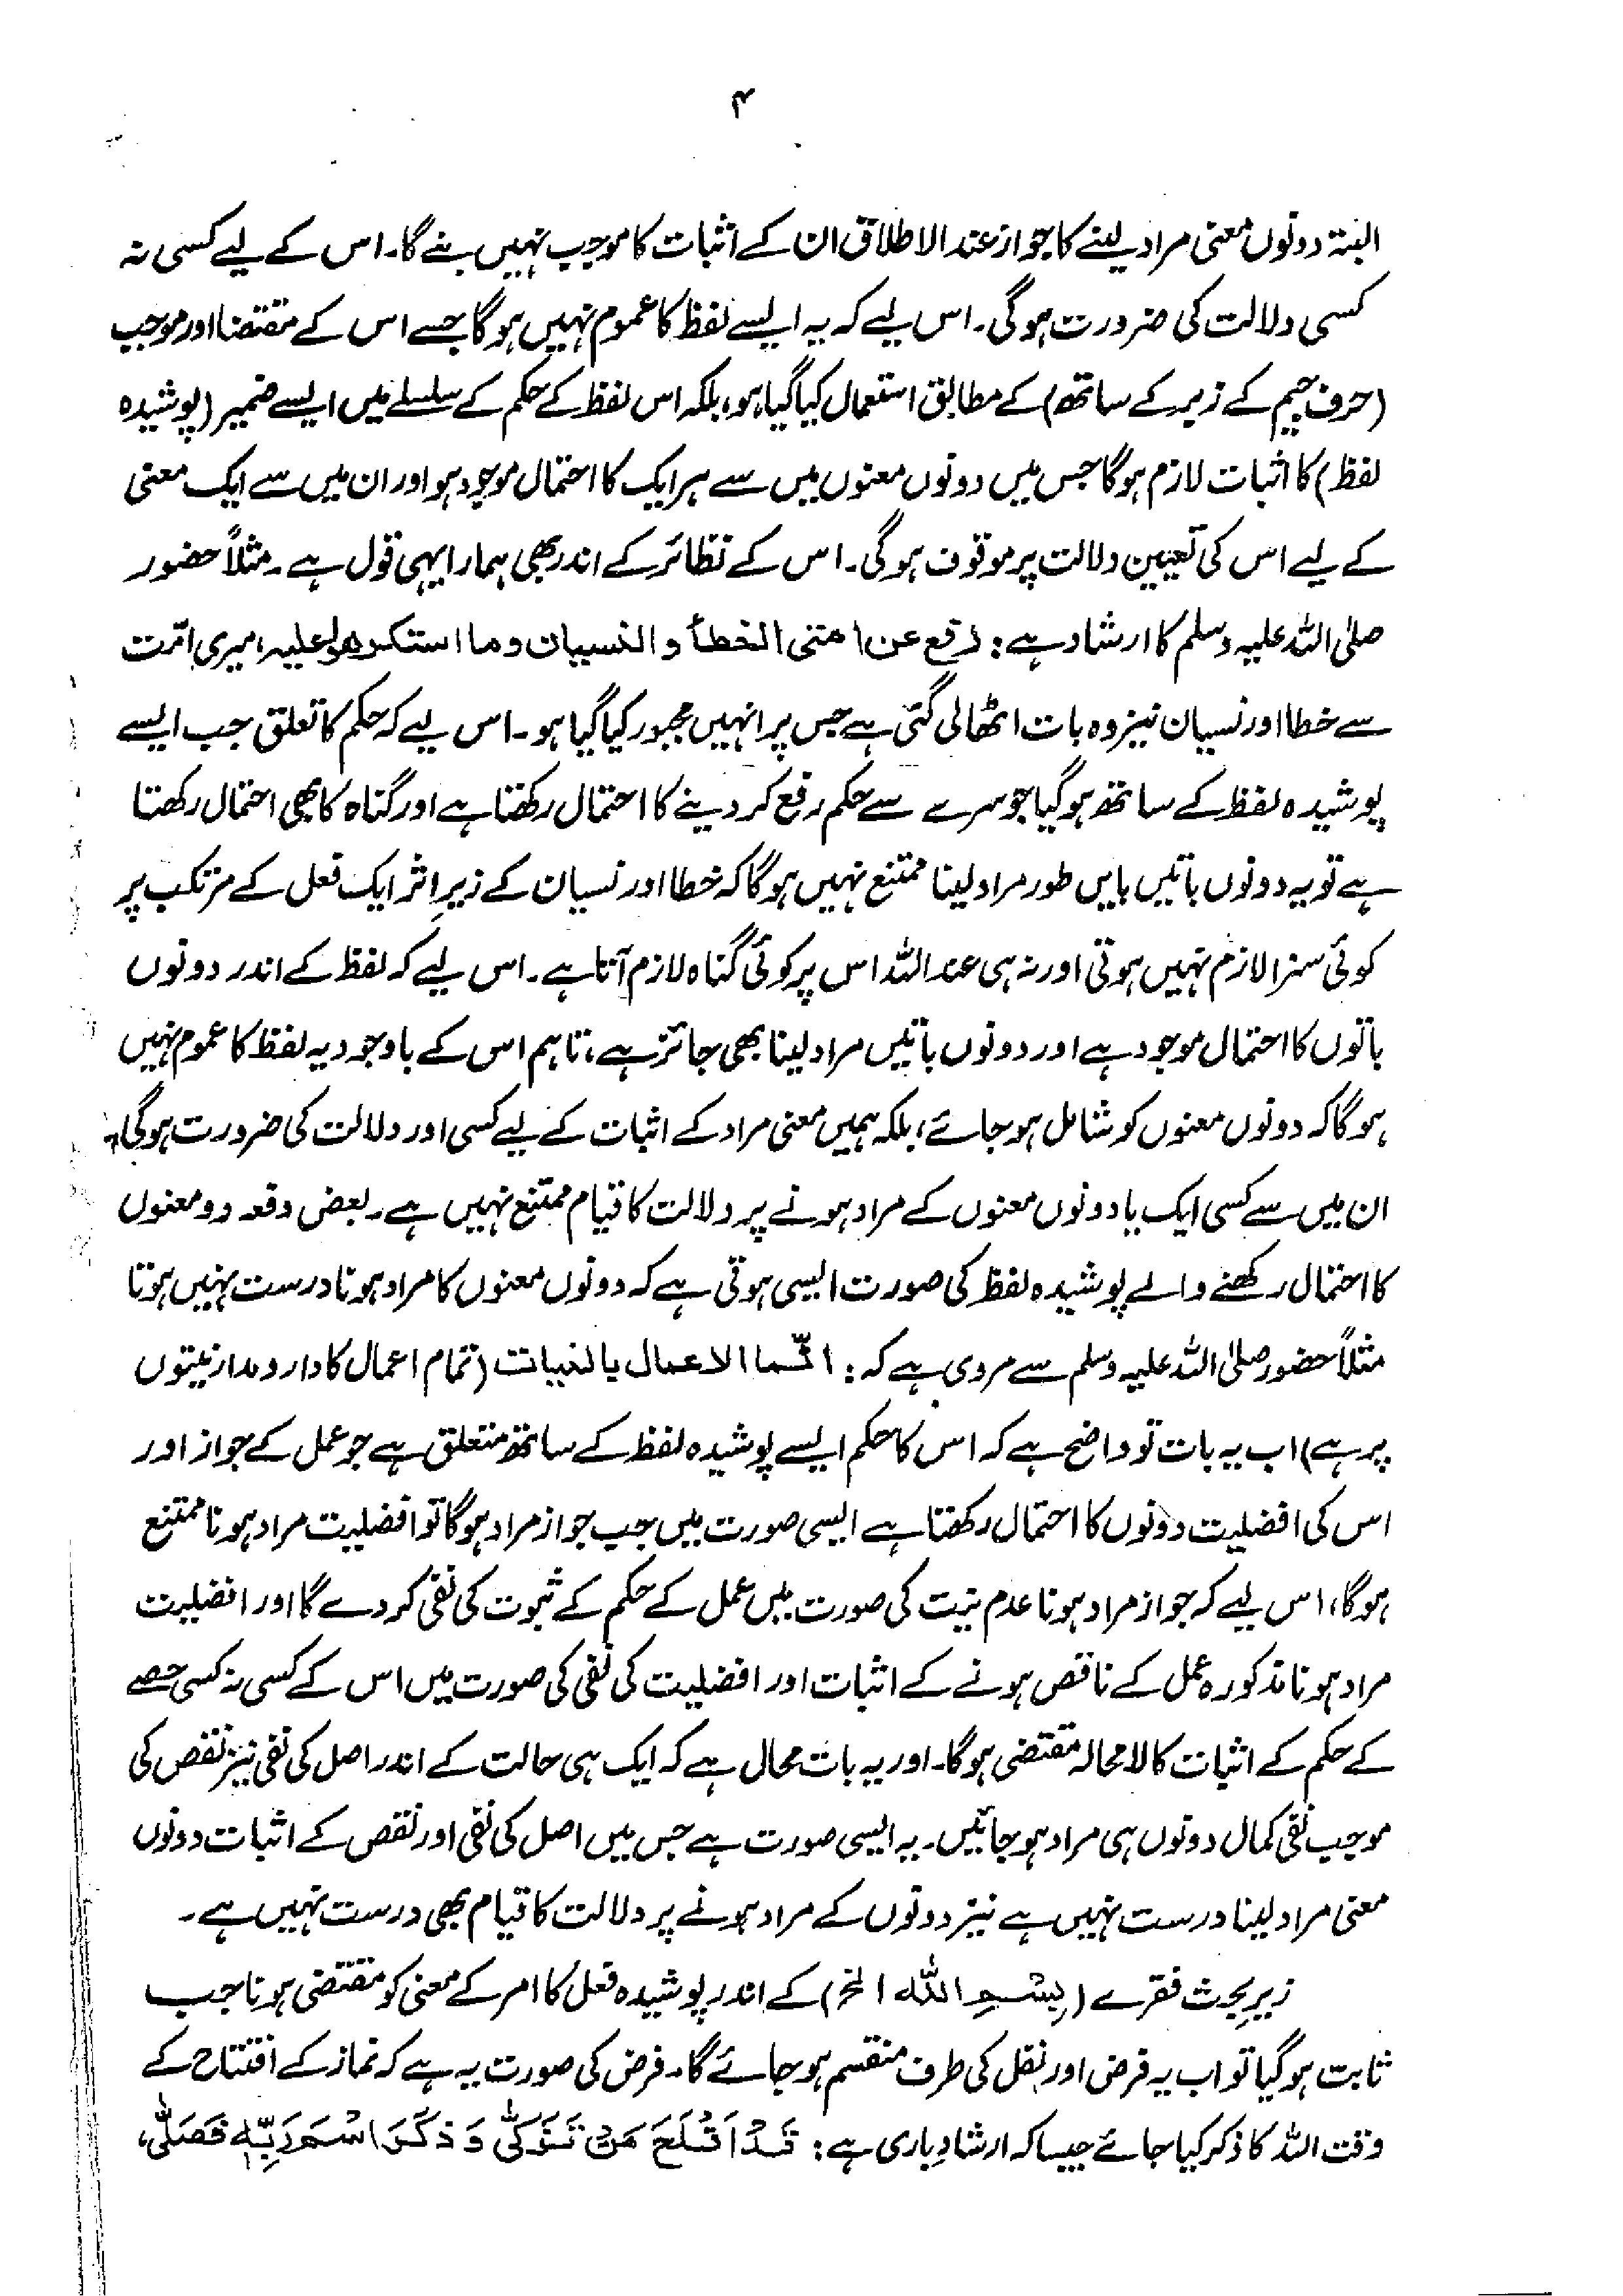 ۴
البتہ دونوں معنی مراد لینے کا جواز عند الاطلاق ان کے اثبات کا موجب نہیں بنے گا۔ اس کے لیے کسی نہ
کسی دلالت کی ضرورت ہوگی۔ اس لیے کہ یہ ایسے لفظ کا عموم نہیں ہوگا جسے اس کے مقتضا اور موجب
(حرف جیم کے زیر کے ساتھ) کے مطابق استعمال کیا گیا ہو؛ بلکہ اس لفظ کے حکم کے سلسلے میں ایسے ضمیر (پوشیدہ
لفظ) کا اثبات لازم ہوگا جس میں دونوں معنوں میں سے ہر ایک کا احتمال موجود ہو اور ان میں سے ایک معنی
کے لیے اس کی تعیین دلالت پر موقوف ہوگی۔ اس کے نظائر کے اندر بھی ہمارا یہی قول ہے۔ مثلاً حضور
صلی اللہ علیہ وسلم کا ارشاد ہے: رفع عن امتی الخطأ و النسیان و ما استکرھوا علیہ، میری امّت
سے خطا اور نسیان نیز وہ بات اٹھالی گئی ہے جس پر انہیں مجبور کیا گیا ہو۔ اس لیے کہ حکم کا تعلق جب ایسے
پوشیدہ لفظ کے ساتھ ہوگیا جو سرے سے حکم رفع کر دینے کا احتمال رکھتا ہے اور گناہ کا بھی احتمال رکھتا
ہے تو یہ دونوں باتیں بایں طور مراد لینا ممتنع نہیں ہوگا کہ خطا اور نسیان کے زیرِ اثر ایک فعل کے مرتکب پر
کوئی سزا لازم نہیں ہوتی اور نہ ہی عند اللہ اس پر کوئی گناہ لازم آتا ہے۔ اس لیے کہ لفظ کے اندر دونوں
باتوں کا احتمال موجود ہے اور دونوں باتیں مراد لینا بھی جائز ہے، تاہم اس کے باوجود یہ لفظ کا عموم نہیں
ہوگا کہ دونوں معنوں کو شامل ہو جائے؛ بلکہ ہمیں معنی مراد کے اثبات کے لیے کسی اور دلالت کی ضرورت ہوگی،
ان میں سے کسی ایک یا دونوں معنوں کے مراد ہونے پر دلالت کا قیام ممتنع نہیں ہے۔ بعض دفعہ دو معنوں
کا احتمال رکھنے والے پوشیدہ لفظ کی صورت ایسی ہوتی ہے کہ دونوں معنوں کا مراد ہونا درست نہیں ہوتا
مثلاً حضور صلی اللہ علیہ وسلم سے مروی ہے کہ: انّما الاعمال بالنیات (تمام اعمال کا دار و مدار نیتوں
پر ہے) اب یہ بات تو واضح ہے کہ اس کا حکم ایسے پوشیدہ لفظ کے ساتھ متعلق ہے جو عمل کے جواز اور
اس کی افضلیت دونوں کا احتمال رکھتا ہے ایسی صورت میں جب جواز مراد ہوگا تو افضلیت مراد ہونا ممتنع
ہوگا، اس لیے کہ جواز مراد ہونا عدم نیت کی صورت میں عمل کے حکم کے ثبوت کی نفی کر دے گا اور افضلیت
مراد ہونا مذکورہ عمل کے ناقص ہونے کے اثبات اور افضلیت کی نفی کی صورت میں اس کے کسی نہ کسی حصے
کے حکم کے اثبات کا لامحالہ مقتضی ہوگا۔ اور یہ بات محال ہے کہ ایک ہی حالت کے اندر اصل کی نفی نیز نقص کی
موجب نفی کمال دونوں ہی مراد ہو جائیں۔ یہ ایسی صورت ہے جس میں اصل کی نفی اور نقص کے اثبات دونوں
معنی مراد لینا درست نہیں ہے نیز دونوں کے مراد ہونے پر دلالت کا قیام بھی درست نہیں ہے۔
زیرِ بحث فقرے (بِسْمِ اللّٰہ الخ) کے اندر پوشیدہ فعل کا امر کے معنی کو مقتضی ہونا جب
ثابت ہوگیا تو اب یہ فرض اور نفل کی طرف منقسم ہو جائے گا۔ فرض کی صورت یہ ہے کہ نماز کے افتتاح کے
وقت اللہ کا ذکر کیا جائے جیسا کہ ارشادِ باری ہے: قَدْ اَفْلَحَ مَنْ تَزَکّٰی وَ ذَکَرَ اسْمَ رَبِّہٖ فَصَلّٰی،